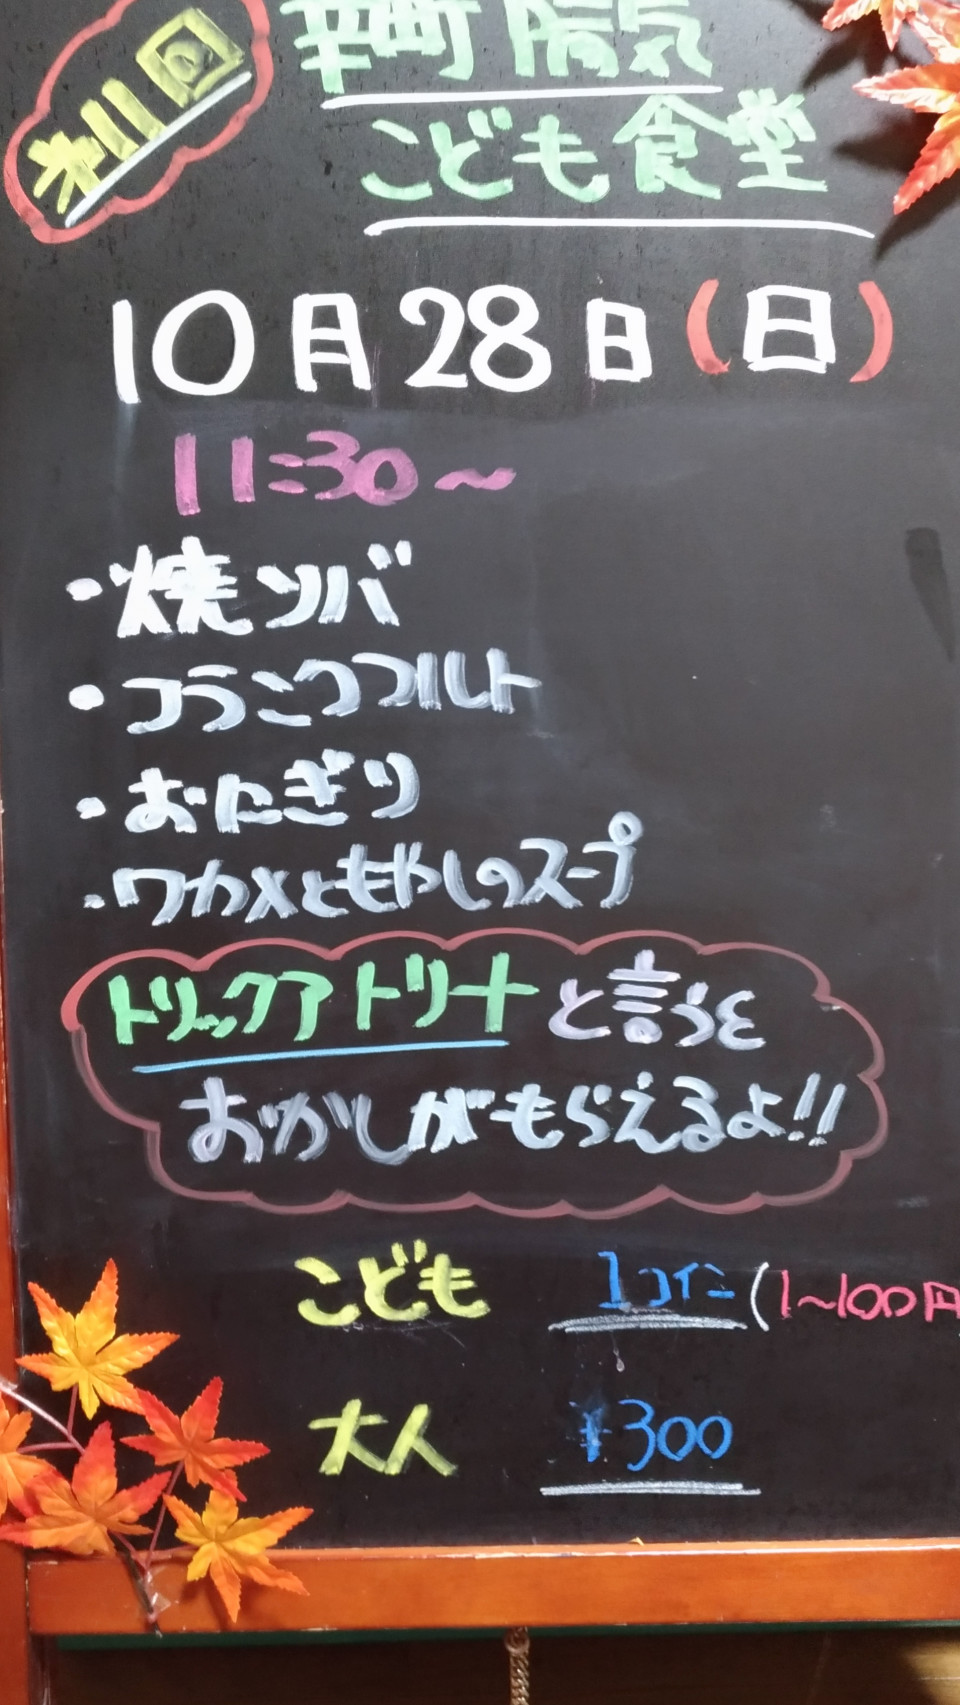 幸町陽気
こども食堂
10月28日(日)
11:30～
・焼ソバ
・フランクフルト
・おにぎり
・ワカメともやしのスープ
トリックアトリートと言うと
おかしがもらえるよ!!
こども 1コイン(1～100円
大人 ¥300